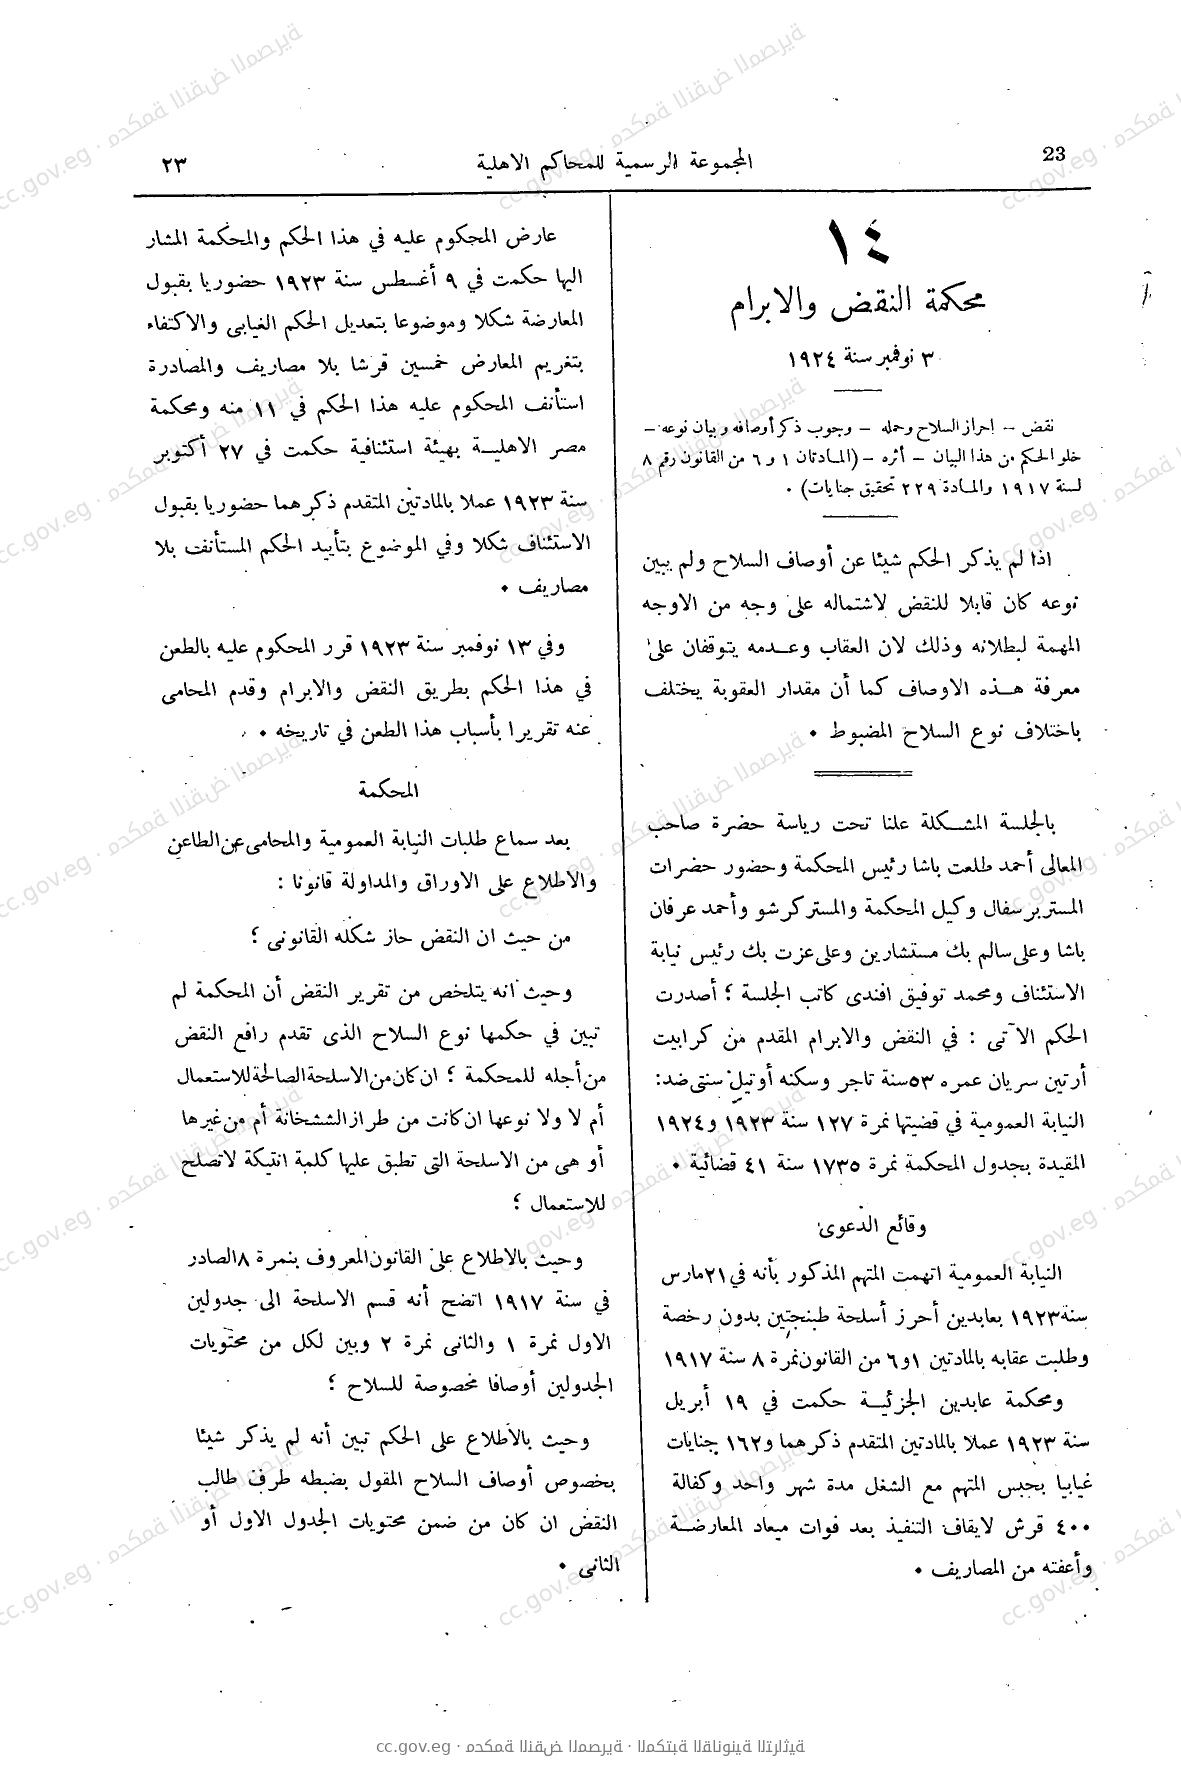 23
المجموعة الرسمية للمحاكم الاهلية
٢٣
١٤
محكمة النقض والابرام
٣ نوفمبر سنة ١٩٢٤
نقض – احراز السلاح وحمله – وجوب ذكر أوصافه وبيان نوعه –
خلو الحكم من هذا البيان – أثره – (المادتان ١ و ٦ من القانون رقم ٨
لسنة ١٩١٧ والمادة ٢٢٩ تحقيق جنايات) .
اذا لم يذكر الحكم شيئا عن أوصاف السلاح ولم يبين
نوعه كان قابلا للنقض لاشتماله على وجه من الاوجه
المهمة لبطلانه وذلك لان العقاب وعدمه يتوقفان على
معرفة هذه الاوصاف كما أن مقدار العقوبة يختلف
باختلاف نوع السلاح المضبوط .
بالجلسة المشكلة علنا تحت رياسة حضرة صاحب
المعالى أحمد طلعت باشا رئيس المحكمة وحضور حضرات
المستر برسفال وكيل المحكمة والمستر كرشو وأحمد عرفان
باشا وعلى سالم بك مستشارين وعلى عزت بك رئيس نيابة
الاستئناف ومحمد توفيق افندى كاتب الجلسة ؛ أصدرت
الحكم الآتى : في النقض والابرام المقدم من كرابيت
أرتين سريان عمره ٥٣ سنة تاجر وسكنه أوتيل سنتى ضد:
النيابة العمومية في قضيتها نمرة ١٢٧ سنة ١٩٢٣ و١٩٢٤
المقيدة بجدول المحكمة نمرة ١٧٣٥ سنة ٤١ قضائية .
وقائع الدعوى
النيابة العمومية اتهمت المتهم المذكور بأنه في ٢١ مارس
سنة ١٩٢٣ بعابدين أحرز أسلحة طبنجتين بدون رخصة
وطلبت عقابه بالمادتين ١و٦ من القانون نمرة ٨ سنة ١٩١٧
ومحكمة عابدين الجزئية حكمت في ١٩ أبريل
سنة ١٩٢٣ عملا بالمادتين المتقدم ذكرهما و١٦٢ جنايات
غيابيا بحبس المتهم مع الشغل مدة شهر واحد وكفالة
٤٠٠ قرش لايقاف التنفيذ بعد فوات ميعاد المعارضة
وأعفته من المصاريف .
عارض المحكوم عليه في هذا الحكم والمحكمة المشار
اليها حكمت في ٩ أغسطس سنة ١٩٢٣ حضوريا بقبول
المعارضة شكلا وموضوعا بتعديل الحكم الغيابى والاكتفاء
بتغريم المعارض خمسين قرشا بلا مصاريف والمصادرة
استأنف المحكوم عليه هذا الحكم في ١١ منه ومحكمة
مصر الاهلية بهيئة استئنافية حكمت في ٢٧ أكتوبر
سنة ١٩٢٣ عملا بالمادتين المتقدم ذكرهما حضوريا بقبول
الاستئناف شكلا وفي الموضوع بتأييد الحكم المستأنف بلا
مصاريف .
وفي ١٣ نوفمبر سنة ١٩٢٣ قرر المحكوم عليه بالطعن
في هذا الحكم بطريق النقض والابرام وقدم المحامى
عنه تقريرا بأسباب هذا الطعن في تاريخه .
المحكمة
بعد سماع طلبات النيابة العمومية والمحامى عن الطاعن
والاطلاع على الاوراق والمداولة قانونا :
من حيث ان النقض حاز شكله القانونى ؛
وحيث انه يتلخص من تقرير النقض أن المحكمة لم
تبين في حكمها نوع السلاح الذى تقدم رافع النقض
من أجله للمحكمة ؛ ان كان من الاسلحة الصالحة للاستعمال
أم لا ولا نوعها ان كانت من طراز الششخانة أم من غيرها
أو هى من الاسلحة التى تطبق عليها كلمة انتيكة لا تصلح
للاستعمال ؛
وحيث بالاطلاع على القانون المعروف بنمرة ٨ الصادر
في سنة ١٩١٧ اتضح أنه قسم الاسلحة الى جدولين
الاول نمرة ١ والثانى نمرة ٢ وبين لكل من محتويات
الجدولين أوصافا مخصوصة للسلاح ؛
وحيث بالاطلاع على الحكم تبين أنه لم يذكر شيئا
بخصوص أوصاف السلاح المقول بضبطه طرف طالب
النقض ان كان من ضمن محتويات الجدول الاول أو
الثانى .
cc.gov.eg · محكمة النقض المصرية · المكتبة القانونية التراثية